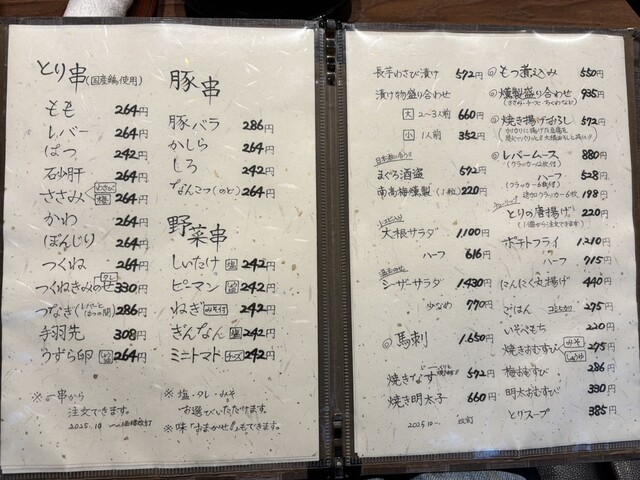 とり串(国産鶏使用)
もも 264円
レバー 264円
はつ 242円
石少肝 264円
ささみ わさび 梅 264円
かわ 264円
ぼんじり 264円
つくね 264円
つくねきみのせ タレ 330円
つなぎ(レバーとはつの間) 286円
手羽先 308円
うずら卵 264円
※一串から
注文できます。
2025.10
豚串
豚バラ 286円
かしら 264円
しろ 264円
なんこつ(のど) 264円
野菜串
しいたけ 塩 242円
ピーマン 塩 242円
ねぎ みそ付 242円
ぎんなん 塩 242円
ミニトマト チーズ 242円
※ 塩・タレ・みそ
お選びいただけます。
※味「おまかせ」もできます。
長芋わさび漬け 572円
漬け物盛り合わせ
大 2〜3人前 660円
小 1人前 352円
まぐろ酒盗 572円
南高梅燻製(1粒) 220円
大根サラダ 1100円
ハーフ 616円
シーザーサラダ 1430円
少なめ 770円
◎馬刺 1.650円
焼きなす 572円
焼き明太子 660円
2025 10〜 改訂
◎もつ煮込み 550円
◎燻製盛り合わせ 935円
◎焼き揚げおろし 572円
◎レバームース 880円
ハーフ 528円
(クラッカー6枚付)
追加クラッカー6枚 198円
とりの唐揚げ 220円
(1個から注文できます)
ポテトフライ 1210円
ハーフ 715円
にんにく丸揚げ 440円
ごはん 275円
いそべもち 220円
焼きおむすび みそ しょうゆ 275円
梅おむすび 286円
明太おむすび 330円
とりスープ 385円